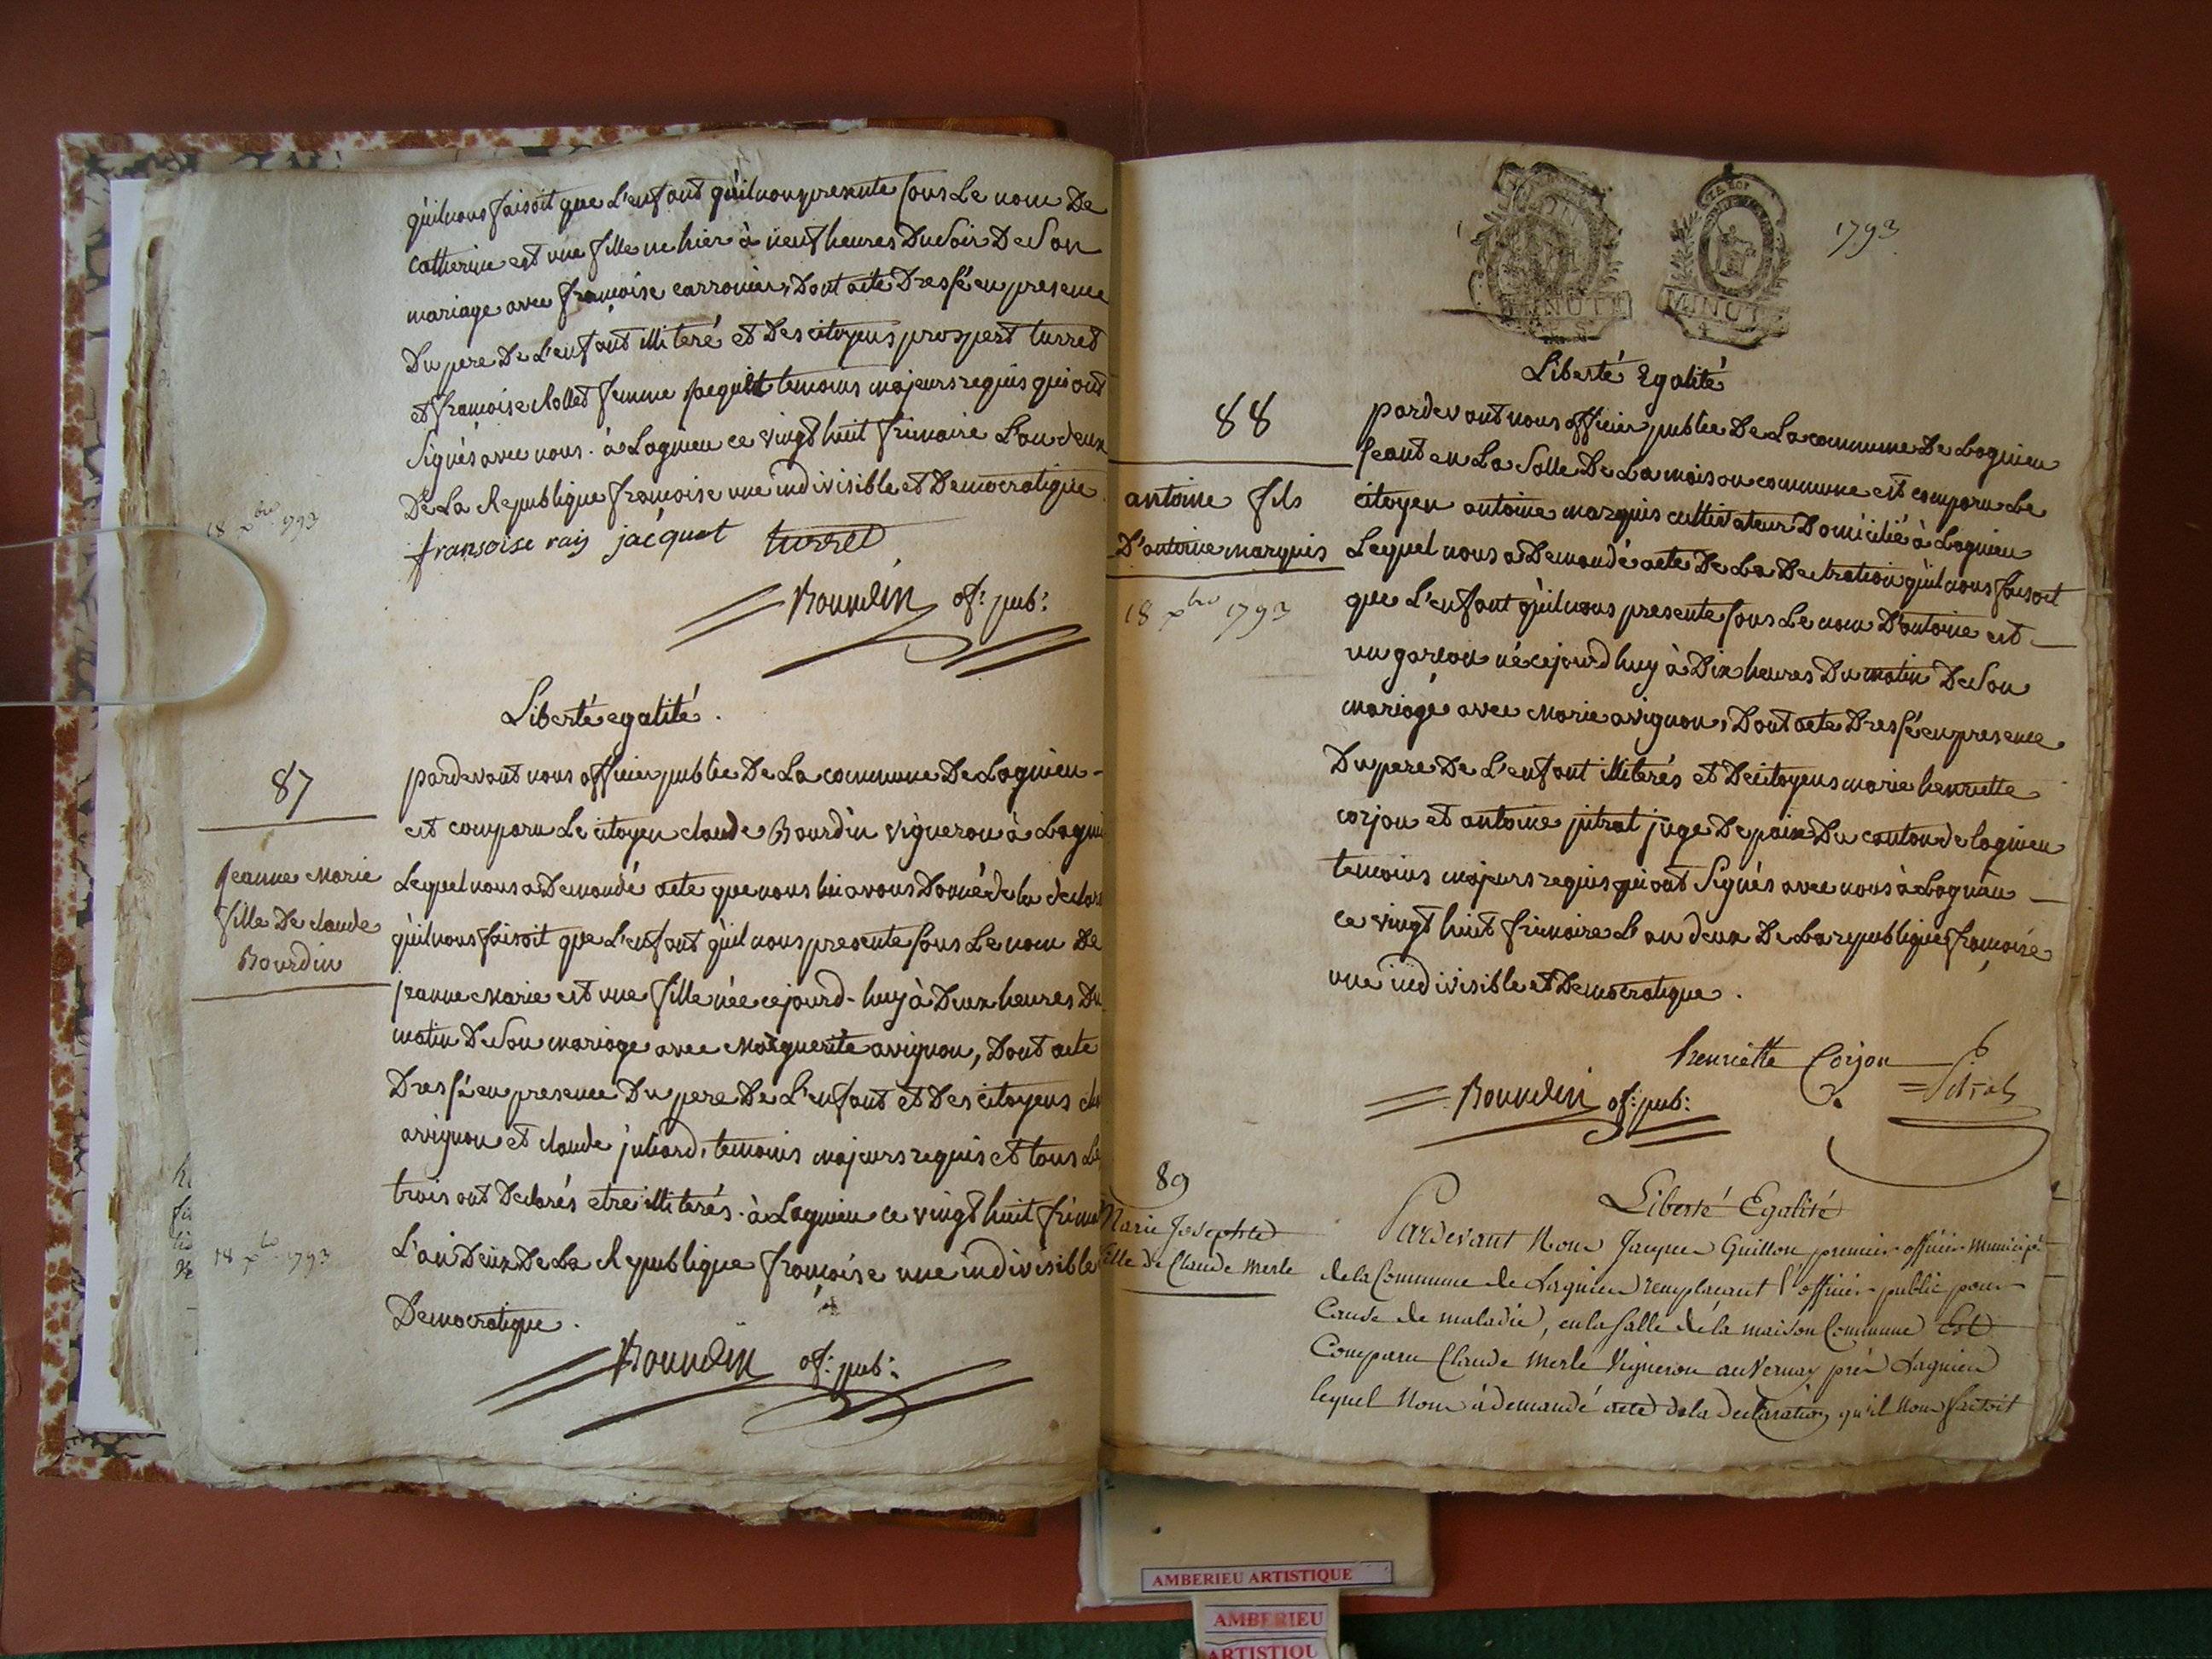 qu'il nous faisoit que L'enfant qu'il nous presente sous Le nom De
catherine est une fille ne hier à neuf heures Du Soir De Son
mariage avec françoise carronier, Dont acte Dressé en presence
Du pere De L'enfant illiteré et Des citoyens prospert turret
et françoise Rollet femme temoins majeurs requis qui ont
Signés avec nous. à Lagnieu ce vingt huit frimaire L'an deux
De La Republique françoise une indivisible et Democratique.
18 xbre 1793
fransoise rais jacquet turret
Bourdin of: pub:
Liberté egalité.
87
Jeanne Marie
fille De claude
Bourdin
18 xbre 1793
pardevant nous officier public De La commune De Lagnieu
est comparu Le citoyen claude Bourdin vigneron à Lagni
Lequel nous a Demandé acte que nous lui avons Donné de la declara
qu'il nous faisoit que L'enfant qu'il nous presente sous Le nom De
jeanne Marie est une fille née cejourd-huy à Deux heures Du
matin De Son mariage avec Marguerite avignon, Dont acte
Dressé en presence Du pere De L'enfant et Des citoyens
avignon et claude juliard, temoins majeurs requis et tous Les
trois ont Declarés etre illiterés. à Lagnieu ce vingt huit frima
L'an Deux De La Republique françoise une indivisible
Democratique.
Bourdin of: pub:
MINUTE
MINUTE
1793
Liberté Egalité
88
antoine fils
D'antoine marquis
18 xbre 1793
pardevant nous officier public De La commune De Lagnieu
seant en La Salle De La maison commune est comparu Le
citoyen antoine marquis cultivateur Domicilié à Lagnieu
Lequel nous a Demandé acte De La Declration qu'il nous faisoit
que L'enfant qu'il nous presente sous Le nom D'antoine est
un garcon né cejourd huy à Dix heures Du matin De Son
mariage avec Marie avignon, Dont acte Dressé en presence
Du pere De L'enfant illiterés et De citoyens marie henriette
corjon et antoine jitrat juge De paix Du canton de lagnieu
temoins majeurs requis qui ont Signés avec nous à Lagnieu
ce vingt huit frimaire L'an deux De La republique françoise
une indivisible et Democratique.
henriette Corjon
Bourdin of: pub:
89
Marie Josephte
fille de Claude Merle
Liberté Egalité
Pardevant Nous Jacques Guillon, premier officier municipal
de la Commune de Lagnieu remplacant l'officier public pour
Cause de maladie, en la salle de la maison Commune Est
Comparu Claude Merle Vigneron au Vernay près Lagnieu
lequel Nous à demandé acte de la declaration qu'il Nous faisoit
AMBERIEU ARTISTIQUE
AMBERIEU
ARTISTIQU